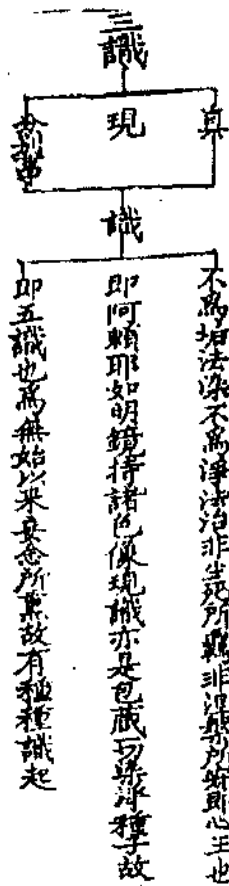 三識
真
現
分別事
識
不為垢法染不為淨法治非生死所羈非涅槃所即心王也
即阿賴耶如明鏡持諸色像現識亦是包藏切染淨種子故
即五識也為無始以来妄念所熏故有種種識起